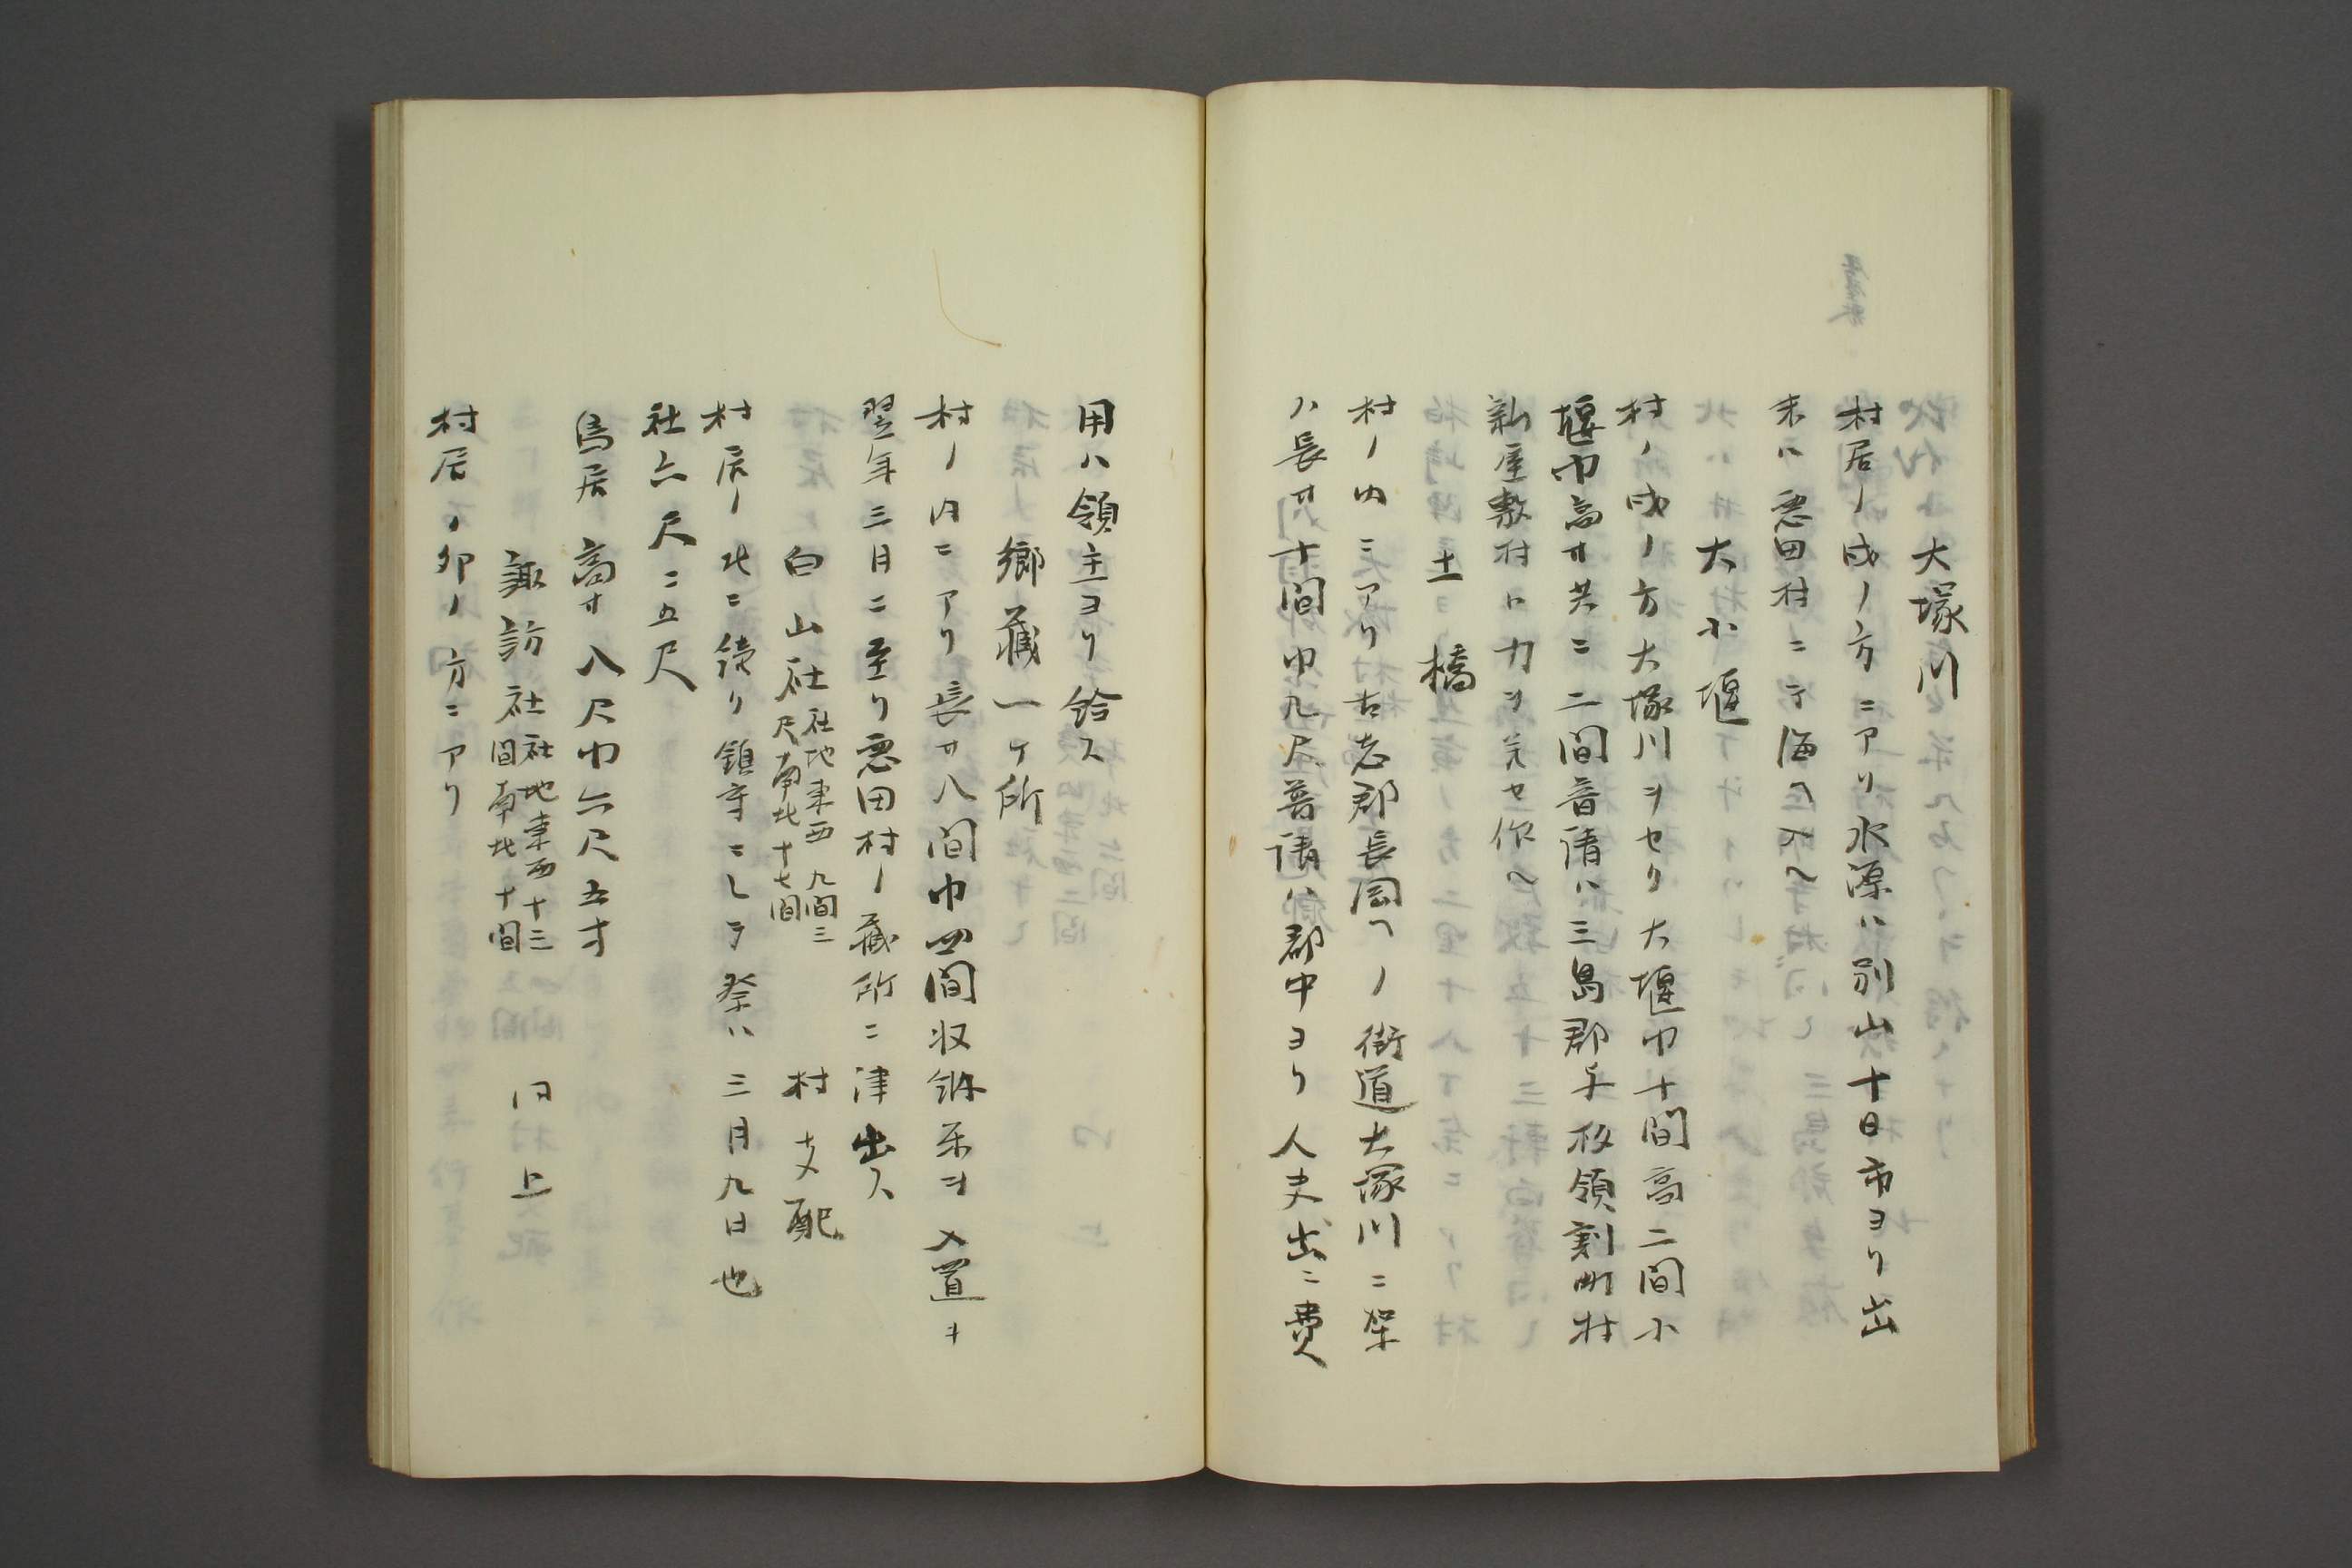 大塚川
村居ノ戌ノ方ニアリ水源ハ別山十日市ヨリ出
末ハ悪田村ニテ海ヘ入ヘ
大小堰
村ノ戌ノ方大塚川ヲセク大堰巾十間高二間小
堰巾高サ共ニ二間普請ハ三島郡与板領割町村
新屋敷村ロ力ヲ竞セ作ヘ
土橋
村ノ内ニアリ古志郡長岡ヘノ街道大塚川ニ架
ハ長サ十間巾九尺普請ハ郡中ヨリ人夫出ニ費
用ハ領主ヨリ給ス
郷蔵一ケ所
村ノ内ニアリ長サ八間巾四間収納米ヲ入置キ
翌年三月ニ至リ悪田村ノ蔵所ニ津出ス
白山社 社地東西九間三尺南北十七間 村支配
村居ノ北ニ続リ鎮守ニシテ祭ハ三月九日也
社六尺ニ五尺
鳥居高サ八尺巾六尺五寸
諏訪社 社地東西十三間南北十間 同上
村居ノ卯ノ方ニアリ